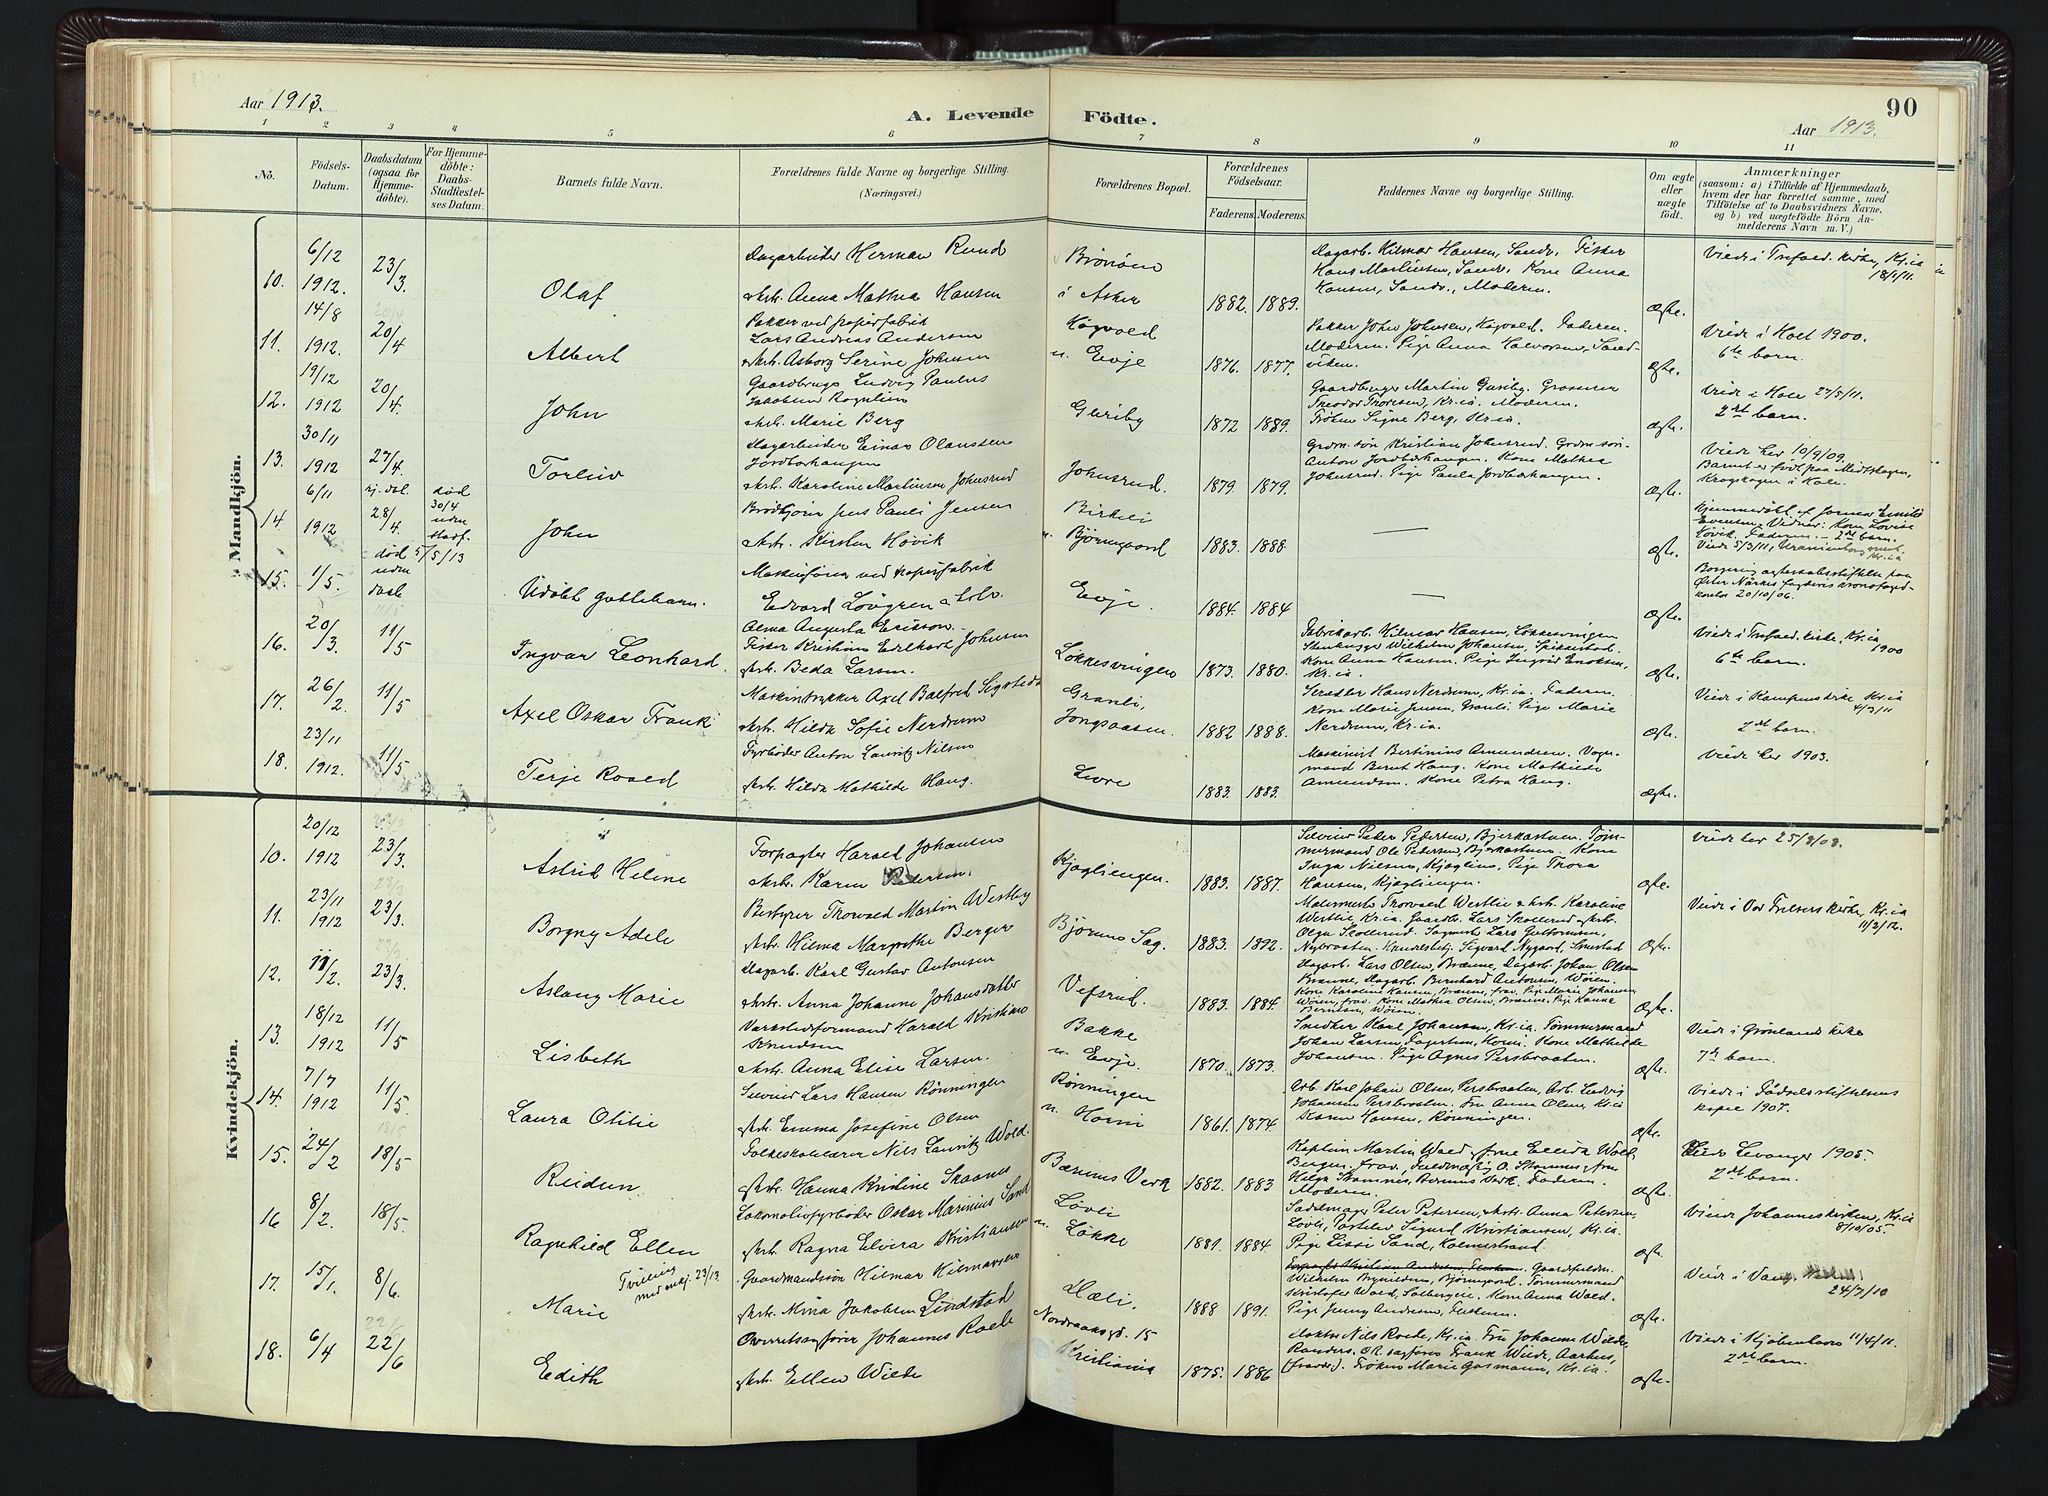 Aar 1913.
A. Levende Födte.
90
Aar 1913.
1 2 3 4 5 6 7 8 9 10 11
No.
Födsels-
Datum.
Daabsdatum
(ogsaa for
Hjemme-
döbte).
For Hjemme-
döbte:
Daabs-
Stadfæstel-
ses Datum.
Barnets fulde Navn.
Forældrenes fulde Navne og borgerlige Stilling.
(Næringsvei.)
Forældrenes Bopæl.
Forældrenes
Födselsaar.
Faderens. Moderens.
Faddernes Navne og borgerlige Stilling.
Om ægte
eller
uægte
födt.
Anmærkninger
(saasom: a) i Tilfælde af Hjemmedaab,
hvem der har forrettet samme, med
Tilföielse af to Daabsvidners Navne,
og b) ved uægtefödte Börn An-
melderens Navn m. V.)
Mandkjön.
10. 6/12 1912. 23/3. Olaf
Dagarbeider Herman Rund
Hstr. Anna Mathea Hansen
Brönöen
i Asker
1882. 1889.
Dagarb. Hilmar Hansen, Sandv. Fisker
Hans Martinsen, Sandv. Kone Anna
Hansen, Sandv., Moderen.
ægte.
Viede i Trefold. kirke, Kr.ia
18/1/11.
11. 14/8 1912. 20/4 Albert
Pakker ved papirfabrik
Lars Andreas Andersen
Hstr. Asborg Serine Johnsen
u. Evje
1876. 1877.
Pakker John Johnsen, Faderen.
Moderen. Pige Anna Halvorsen, Sand-
viken.
ægte.
Viede i Holt 1900.
6te barn.
12. 19/12 1912 20/4. John
Gaardbruger Ludvig Paulus
Hstr. Marie Berg
Gjeriby
1872 1889.
Gaardbruger Martin Grosserer
Theodor Thoresen, Kr.ia. Moderen.
Fröken Signe Berg, Kr.ia.
ægte.
Viede i Hole 27/5/11.
2det barn.
13. 30/11 1912 27/4. Torleiv
Dagarbeider Einar Olaussen
Jordbærhaugen
Hstr. Karoline Martinsen Johnsrud
Johnsrud.
1879. 1879.
Grdm.sön Kristian Johnsrud. Grdm.sön
Anton Jordbærhaugen. Kone Mathea
Johnsrud. Pige Paula Jordbærhaugen.
ægte.
Viede her 10/9/09.
Barnet er født paa
Krogskogen i Hole.
14. 6/11 1912 28/4 død 30/4 uden stadf. John
Jens Pauli Jensen
Hstr. Kirsten Hövik
Birkeli
u. Björnegaard
1883. 1888.
—
ægte.
Hjemmedøbt af Jormor Emilie
Evensen. Vidner: Kone Lovise
Hövik. Faderen. – 2det barn.
Viede 5/3/11, Uranienborg
Kr.ia
15. 1/5. død 5/5/13 uden daab Udöbt guttebarn.
ved papirfabrik
Edvard Lövgren &
Alma Augusta Erikson.
Evje.
1884. 1884
—
ægte.
Borgerlig
20/10/06.
16. 20/3. 11/5 Ingvar Leonhard.
Fisker Kristian Edthart Johnsen
Hstr. Beda Larsen.
Løkkesvingen
1873. 1880.
Fabrikarb. Hilmar Hansen, Løkkesvingen
Stenhugger Wilhelm Johansen,
Kone Anna Hansen. Pige Ingrid
Kr.ia.
ægte.
Viede i Trefold. kirke, Kr.ia
1900
6te barn.
17. 26/2. 11/5 Axel Oskar Frank
Maskintrykker Axel Balfred Sigstedt
Hstr. Hilda Sofie Nerdrum
Granli,
Jongsaasen.
1882 1888.
Hans Nerdrum, Kr.ia. Faderen.
Kone Marie Jensen, Granli. Pige Marie
Nerdrum, Kr.ia.
ægte.
Viede i Kampens kirke Kr.ia
4/3/11
2det barn.
18. 23/11 1912. 11/5 Terje Roald
Fyrböder Anton Lauritz Nilsen
Hstr. Hilda Mathilde Haug.
Levre
1883. 1883.
Maskinist Bertinius Amundsen. Vogn-
mand Bernt Haug. Kone Mathilde
Amundsen. Kone Petra Haug.
ægte.
Viede her 1903.
Kvindekjön.
10. 20/12 1912 23/3. Astrid Helene
Forpagter Harald Johansen
Hstr. Karen Pedersen.
Kjagliengen.
1883. 1887.
Peder Pedersen, Bjerkaasen. Töm-
mermand Ole Pedersen, Bjerkaasen. Kone
Inga Nilsen, Kjaglien, Pige Thora
Hansen, Kjagliengen.
ægte.
Viede her 25/3/08.
11. 23/11 1912 23/3. Borgny Adele
Bestyrer Thorvald Martin Westby
Hstr. Hilma Margrethe Berger
Björums Sag.
1883. 1892.
Malermester Thorvald Westlie & Hstr. Karoline
Westlie, Kr.ia. Gaardbr. Lars Skollerud & Hstr.
Olga Skollerud. Lars Guttormsen,
Nybraaten. Sigvard Nygaard,
ægte.
Viede i Vor Frelsers kirke, Kr.ia
11/3/12.
12. 11/2. 23/3. Aslaug Marie
Dagarb. Karl Gustav Antonsen
Hstr. Anna Johanne Johansdatter
Vefsrud.
1883. 1884.
Dagarb. Lars Olsen, Brenne, Dagarb. Johan Olsen
Brenne, Dagarb. Bernhard Antonsen, Wöien.
Kone Karoline Hansen, Brenne, frav. Pige Marie Johansen,
Wöien, frav. Kone Mathea Olsen, Brenne. Pige Hanna
Berntsen, Wöien.
ægte.
13. 18/12 1912 11/5 Lisbeth
Værkstedformand Harald Kristian
Knudsen
Hstr. Anna Elise Larsen.
Bakke
u. Evje.
1870. 1873.
Snedker Karl Johansen, Kr.ia. Tömmermand
Johan Larsen, Kone Mathilde
Johansen. Pige Agnes Persbraaten.
ægte.
Viede i Grönlands kirke
7de barn.
14. 7/7 1912 11/5. Laura Otilie
Lars Hansen Rönningen
Hstr. Emma Josefine Olsen
Rönningen
u. Horni
1861. 1874.
Arb. Karl Johan Olsen, Persbraaten, Arb. Ludvig
Johansen Persbraaten. Fru Anna Olsen, Kr.ia
Karen Hansen, Rönningen.
ægte.
Viede i Födselsstiftelsens
kapel 1907.
15. 24/2 18/5 Reidun
Folkeskolelærer Nils Lauritz Wold.
Hstr. Hanna Kristine Skaanes
Bærums Verk
1882. 1883
Kaptein Martin Wold & frue Ellida Wold,
Bergen, frav. Fuldmægtig O. Stamnes & fru
Helga Stamnes, Bærums Verk. Faderen.
Moderen.
ægte.
Levanger 1905.
2det barn.
16 8/2. 18/5. Ragnhild Ellen
Lokomotivfyrböder Oskar Marinius Sand
Hstr. Ragna Elvira Kristiansen
Lövli
u. Lökke
1881. 1884
Sadelmager Peter Petersen, Hstr. Anna Petersen,
Lövli, Sigurd Kristiansen, Kr.ia.
Pige Lissi Sand, Holmestrand.
ægte.
Viede Johanneskirken, Kr.ia
8/10/05.
17. 15/1. 8/6. Marie Tvilling med mkj. 23/13.
Gaardmandssön Hilmar Hilmarsen
Hstr. Mina Jakobsen Lindstad
Hæli.
1888 1891.
Wilhelm Brynildsen, Björnegaard. Tömmermand
Kristofer Wold, Solbergen. Kone Anna Wold.
Pige Jenny Andersen,
ægte.
Viede i Vang
24/7/10
18. 6/4 22/6 Edith
Overretssagförer Johannes Roede
Hstr. Ellen Wilde
Nordraaksgd. 15
Kristiania
1875. 1886
Doktor Nils Roede, Kr.ia. Fru Johanne Wilde,
Randers. O.R. sagförer Frank Wilde, Aarhus,
(fravær.). Fröken Marie Gasmann, Kr.ia.
ægte.
Viede i Kjöbenhavn 11/4/11.
2det barn.